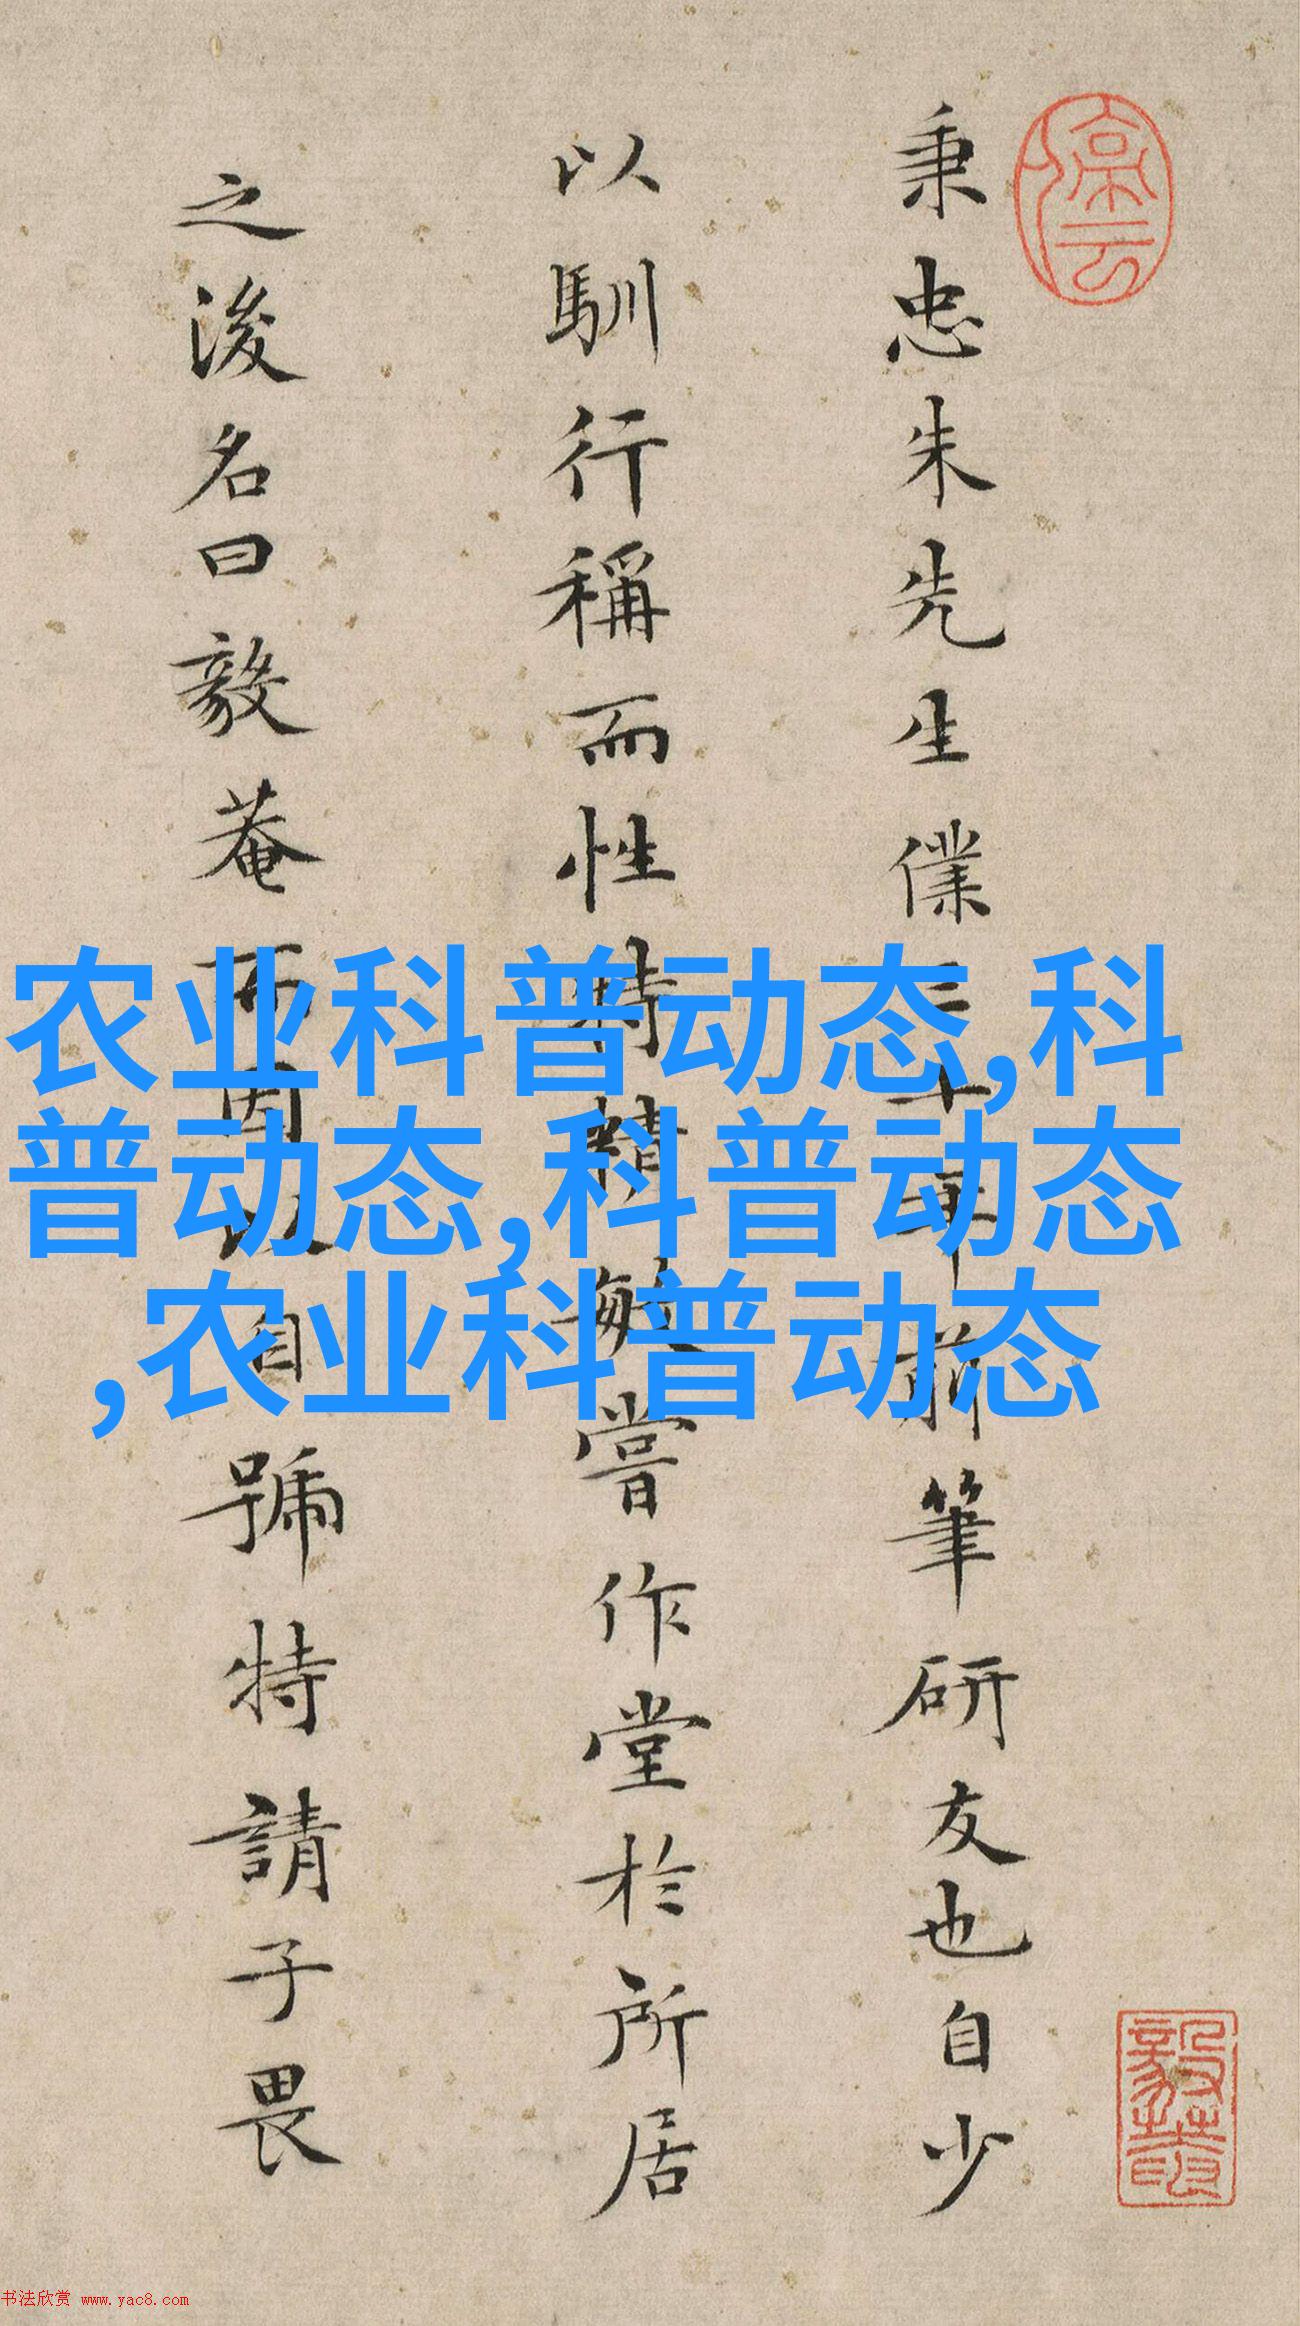 秉忠朱先生僕二十年前筆研友也自少
以馴行稱而性特精敏嘗作堂於所居
之後名曰毅菴而因以自號特請子畏
农业科普动态,科
普动态,科普动态
,农业科普动态
书法欣赏 www.yac8.com